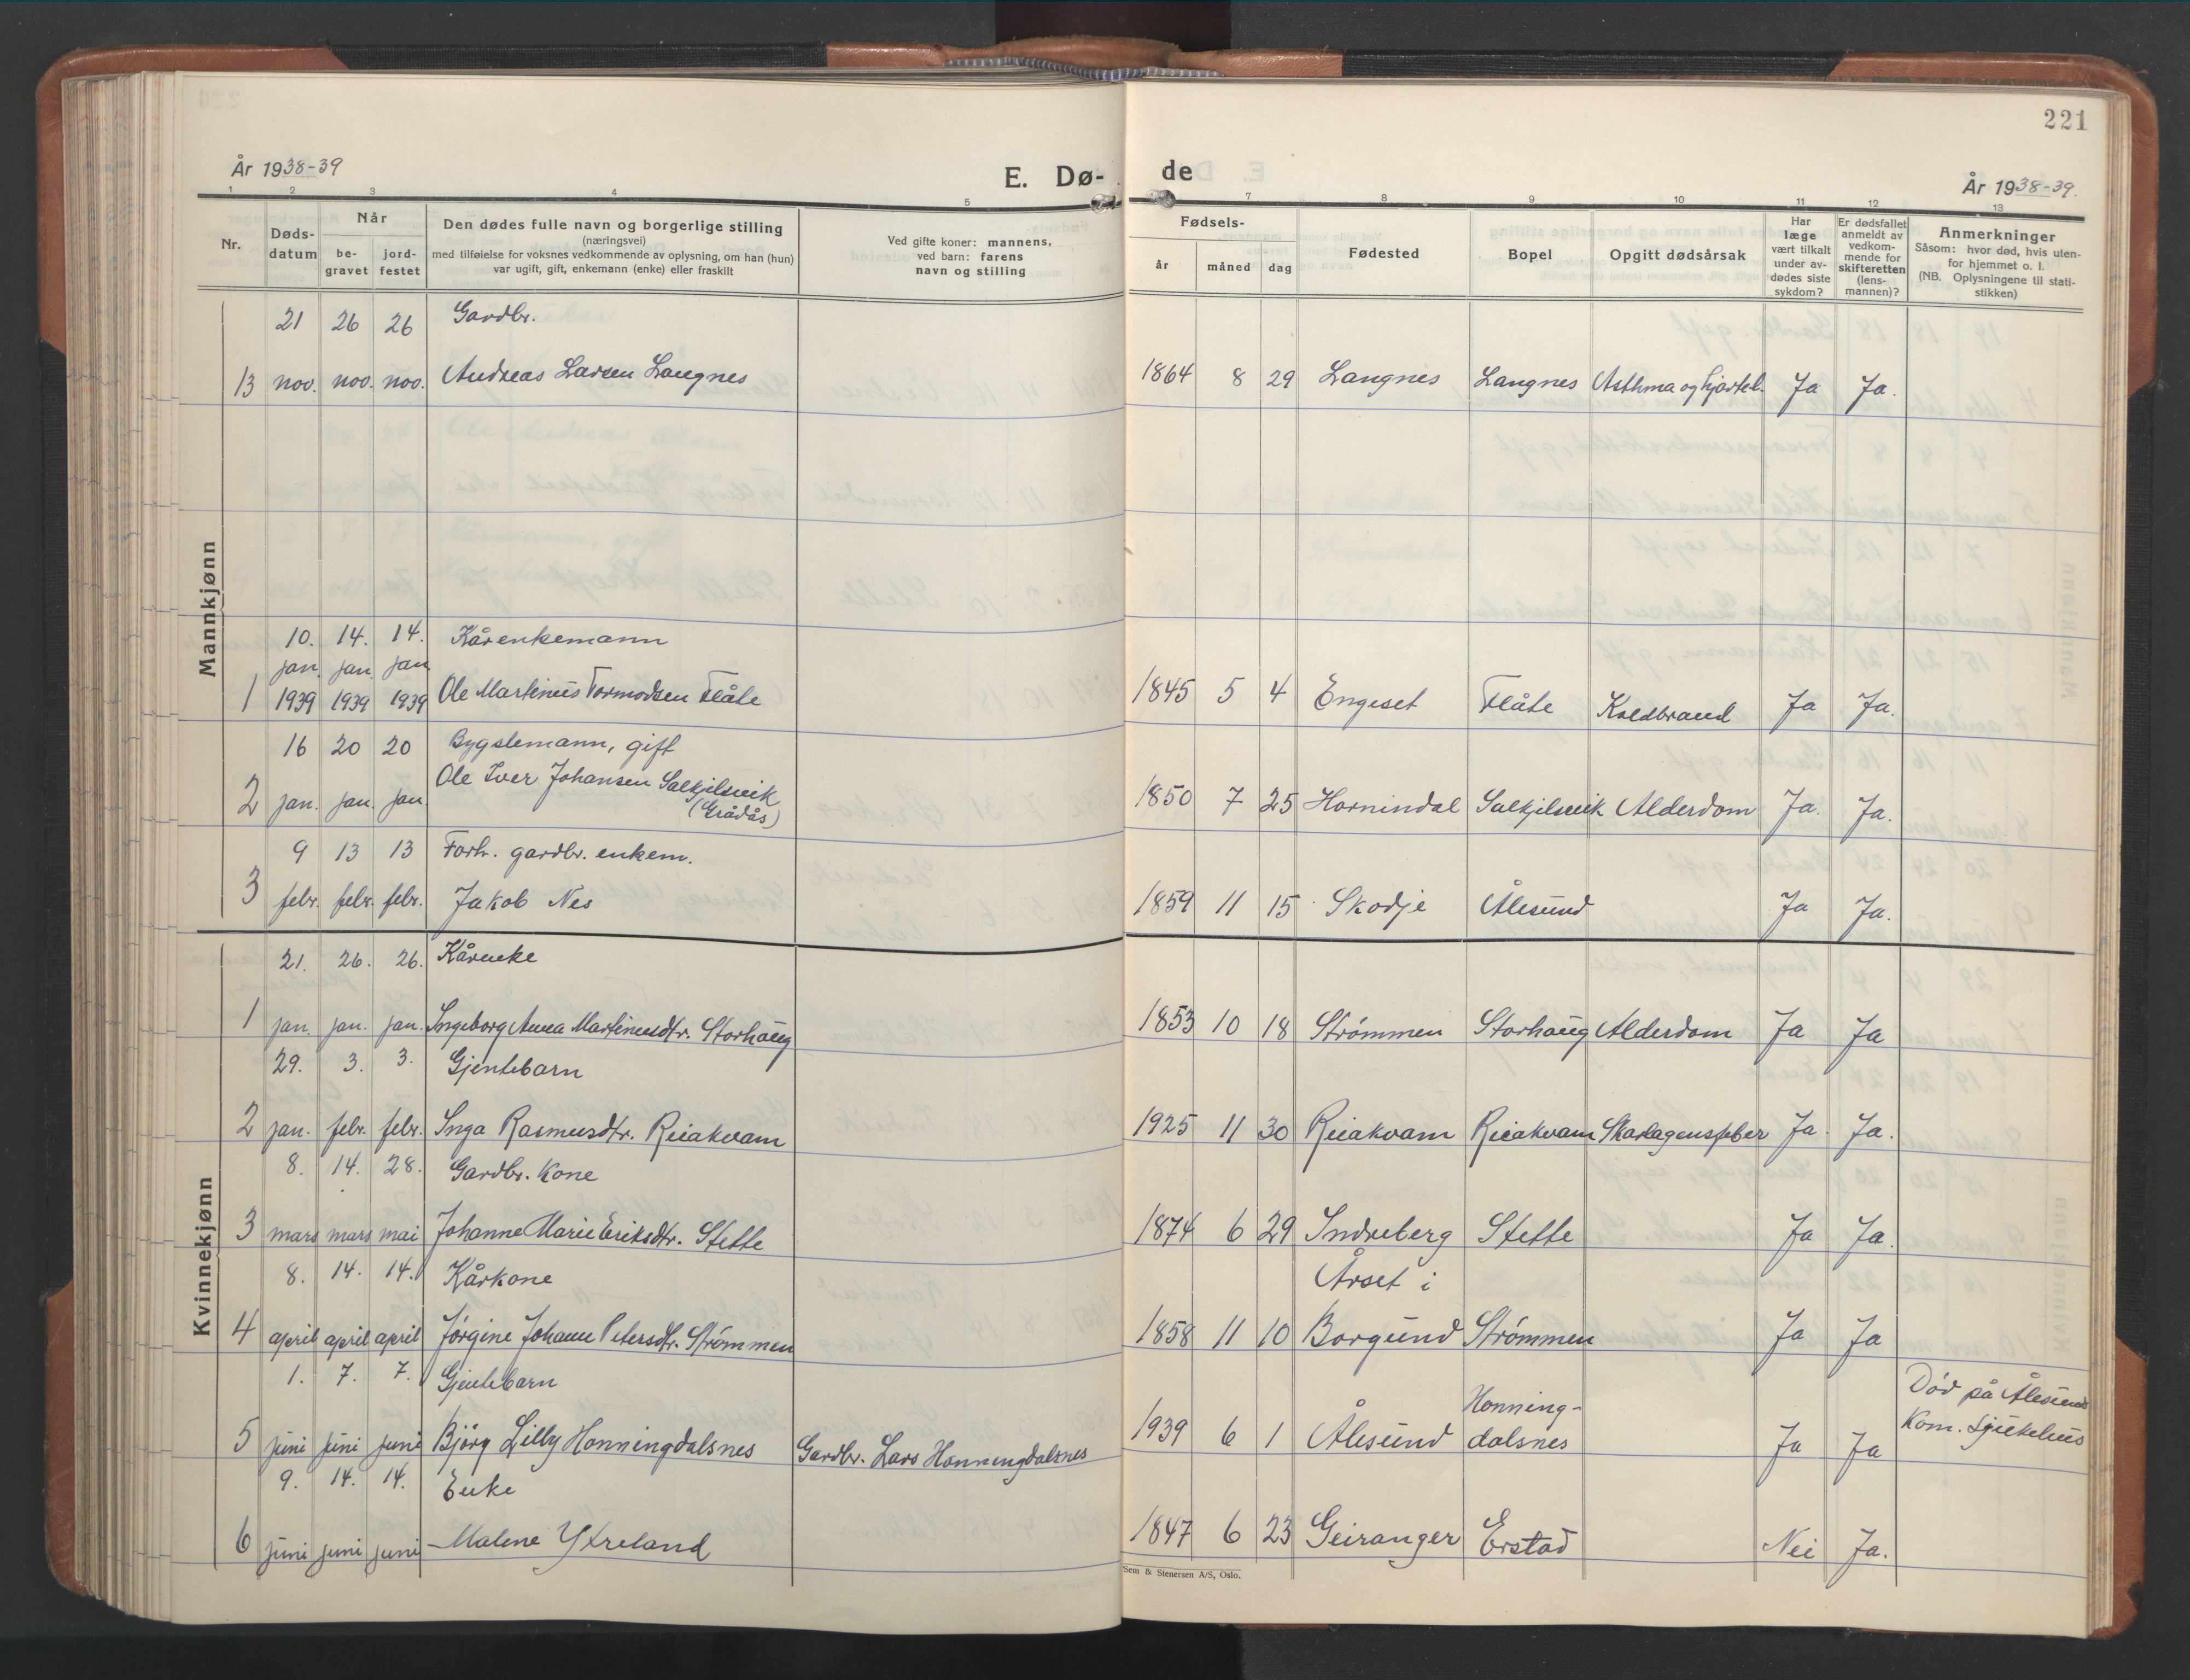 221
År 1938-39
E. Dø-
de
År 1938-39.
1 2 3 4 5 7 8 9 10 11 12 13
Nr.
Døds-
datum
Når
be-
gravet
jord-
festet
Den dødes fulle navn og borgerlige stilling
(næringsvei)
med tilføielse for voksnes vedkommende av oplysning, om han (hun)
var ugift, gift, enkemann (enke) eller fraskilt
Ved gifte koner: mannens,
ved barn: farens
navn og stilling
Fødsels-
år måned dag
Fødested
Bopel
Opgitt dødsårsak
Har
læge
vært tilkalt
under av-
dødes siste
sykdom?
Er dødsfallet
anmeldt av
vedkom-
mende for
skifteretten
(lens-
mannen)?
Anmerkninger
Såsom: hvor død, hvis uten-
for hjemmet o. l.
(NB. Oplysningene til stati-
stikken)
Mannkjønn
21 26 26 Gardbr.
13 nov. nov. nov. Andreas Larsen Langnes 1864 8 29 Langnes Langnes Asthma og hjartel. Ja Ja.
10. 14. 14. Kårenkemann
jan. jan. jan.
1 1939 1939 1939 Ole Martinus Tormodsen Flåte 1845 5 4 Engeset Flåte Koldbrand Ja Ja.
16 20 20 Bygslemann, gift
2 jan. jan. jan. Ole Iver Johansen Salkjelsvik 1850 7 25 Hornindal Salkjelsvik Alderdom Ja. Ja.
(Grådås)
9 13 13 Forh. gardbr. enkem.
3 febr. febr. febr. Jakob Nes 1859 11 15 Skodje Ålesund Ja Ja.
Kvinnekjønn
21. 26. 26. Kårenke
1 jan. jan. jan. Ingeborg Anna Martinusdtr. Storhaug 1853 10 18 Strømmen Storhaug Alderdom Ja Ja
29. 3. 3. Gjentebarn
2 jan. febr. febr. Inga Rasmusdtr. Reiakvam 1925 11 30 Reiakvam Reiakvam Skarlagensfeber Ja. Ja.
8. 14. 28. Gardbr. Kone
3 mars mars mai Johanne Marie Eriksdtr. Stette 1874 6 29 Indreberg Stette Ja Ja.
8. 14. 14. Kårkone Årset i
4 april april april Jørgine Johann Petersdtr. Strømmen 1858 11 10 Borgund Strømmen Ja Ja
1. 7. 7. Gjentebarn Honning- Død på Ålesund
5 juni juni juni Bjørg Lilly Honningdalsnes Gardbr. Lars Honningdalsnes 1939 6 1 Ålesund dalsnes Ja Ja Kom. sjukehus
9. 14. 14. Enke
6 juni juni juni Malene Ytreland 1847 6 23 Geiranger Erstad Nei Ja.
Sem & Stenersen A/S, Oslo.